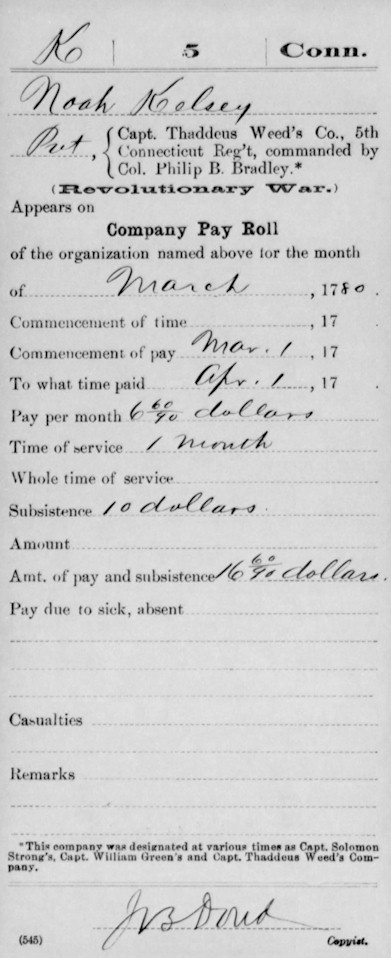 K 5 Conn.
Noah Kelsey
Pvt, { Capt. Thaddeus Weed's Co., 5th
Connecticut Reg't, commanded by
Col. Philip B. Bradley.*
(Revolutionary War.)
Appears on
Company Pay Roll
of the organization named above for the month
of March, 1780.
Commencement of time , 17
Commencement of pay Mar. 1, 17
To what time paid Apr. 1, 17
Pay per month 6 60/90 dollars
Time of service 1 month
Whole time of service
Subsistence 10 dollars.
Amount
Amt. of pay and subsistence 16 60/90 dollars.
Pay due to sick, absent
Casualties
Remarks
*This company was designated at various times as Capt. Solomon
Strong's, Capt. William Green's and Capt. Thaddeus Weed's Com-
pany.
(545) Copyist.